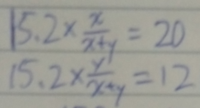 15.2 × x/(x+y) = 20
15.2 × y/(x+y) = 12